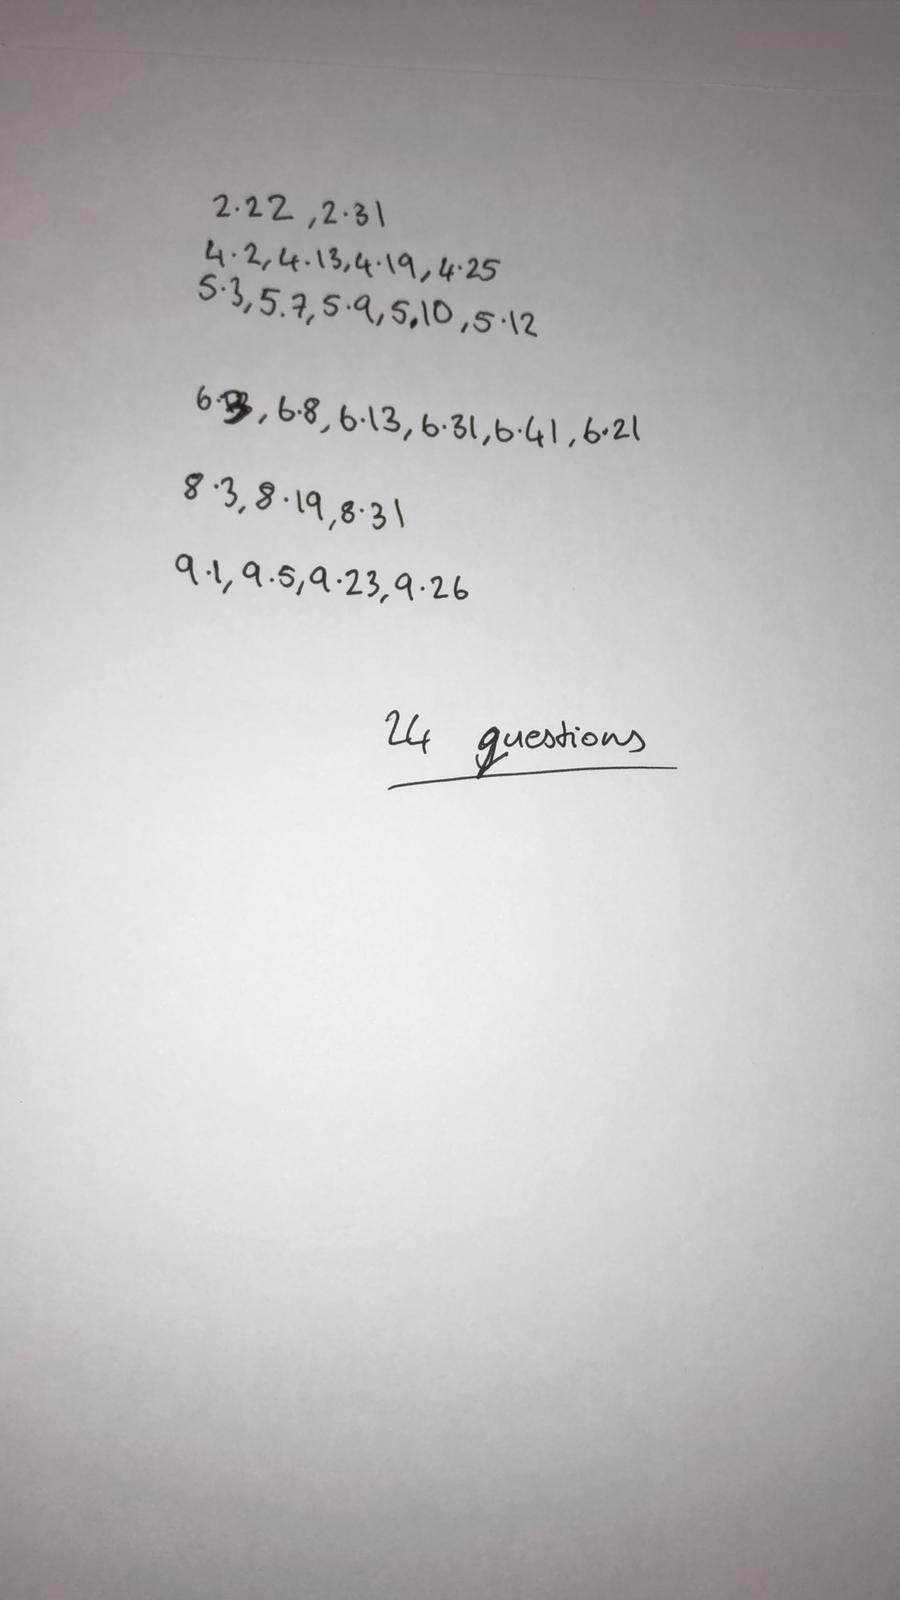 2.22, 2.31
4.2, 4.13, 4.19, 4.25
5.3, 5.7, 5.9, 5.10, 5.12
6.3, 6.8, 6.13, 6.31, 6.41, 6.21
8.3, 8.19, 8.31
9.1, 9.5, 9.23, 9.26
24 questions